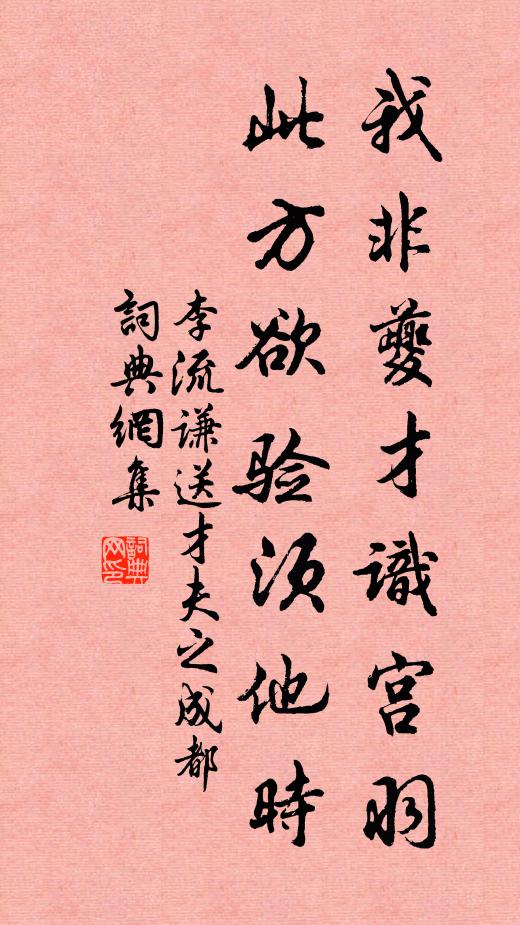 我非夔才識宫羽
此方欲验須他時
李流谦送才夫之成都
詞典網集
詞典網印